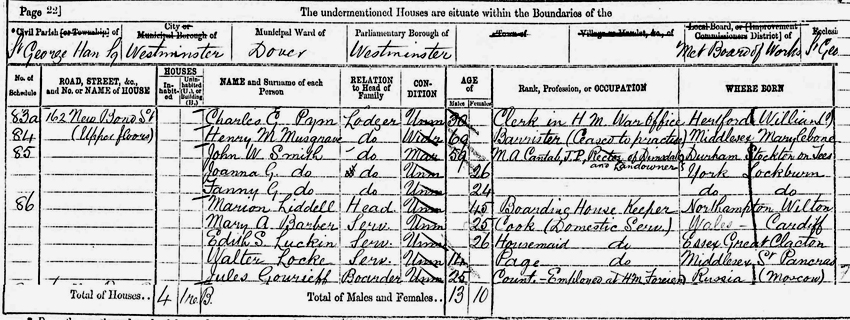 Page 22] The undermentioned Houses are situate within the Boundaries of the
Civil Parish [or Township] of City or Municipal Borough of Municipal Ward of Parliamentary Borough of Town of Village or Hamlet, &c., of Local Board, or [Improvement Commissioners District] of Ecclesi
St George Han Sq Westminster Dover Westminster Met Board of Works St Geo
No. of Schedule ROAD, STREET, &c., and No. or NAME of HOUSE HOUSES In-habit-ed Unin-habited (U.), or Building (B.) NAME and Surname of each Person RELATION to Head of Family CON-DITION AGE of Males Females Rank, Profession, or OCCUPATION WHERE BORN
83a 162 New Bond St Charles E. Pym Lodger Unm 30 Clerk in H M War Office Hertford Willian (?)
84 (Upper floors) Henry M. Musgrave do Widr 69 Barrister (Ceased to practise) Middlesex Marylebone
85 John W. Smith do Mar 59 M.A. Cantab, J.P, Rector of Dinsdale and Landowner Durham Stockton on Tees
Joanna G. do do Unm 26 York Lockburn
Fanny G. do do Unm 24 do do
86 Marion Liddell Head Unm 45 Boarding House Keeper Northampton Wilton
Mary A. Barber Serv. Unm 25 Cook (Domestic Serv.) Wales - Cardiff
Edith S. Luckin Serv. Unm 26 Housemaid do Essex Great Clacton
Walter Locke Serv. Unm 14 Page do Middlesex St Pancras
Jules Gourieff Boarder Unm 25 Count - Employed at H M Foreign Russia (Moscow)
Total of Houses.. 4 B. Total of Males and Females.. 13 10